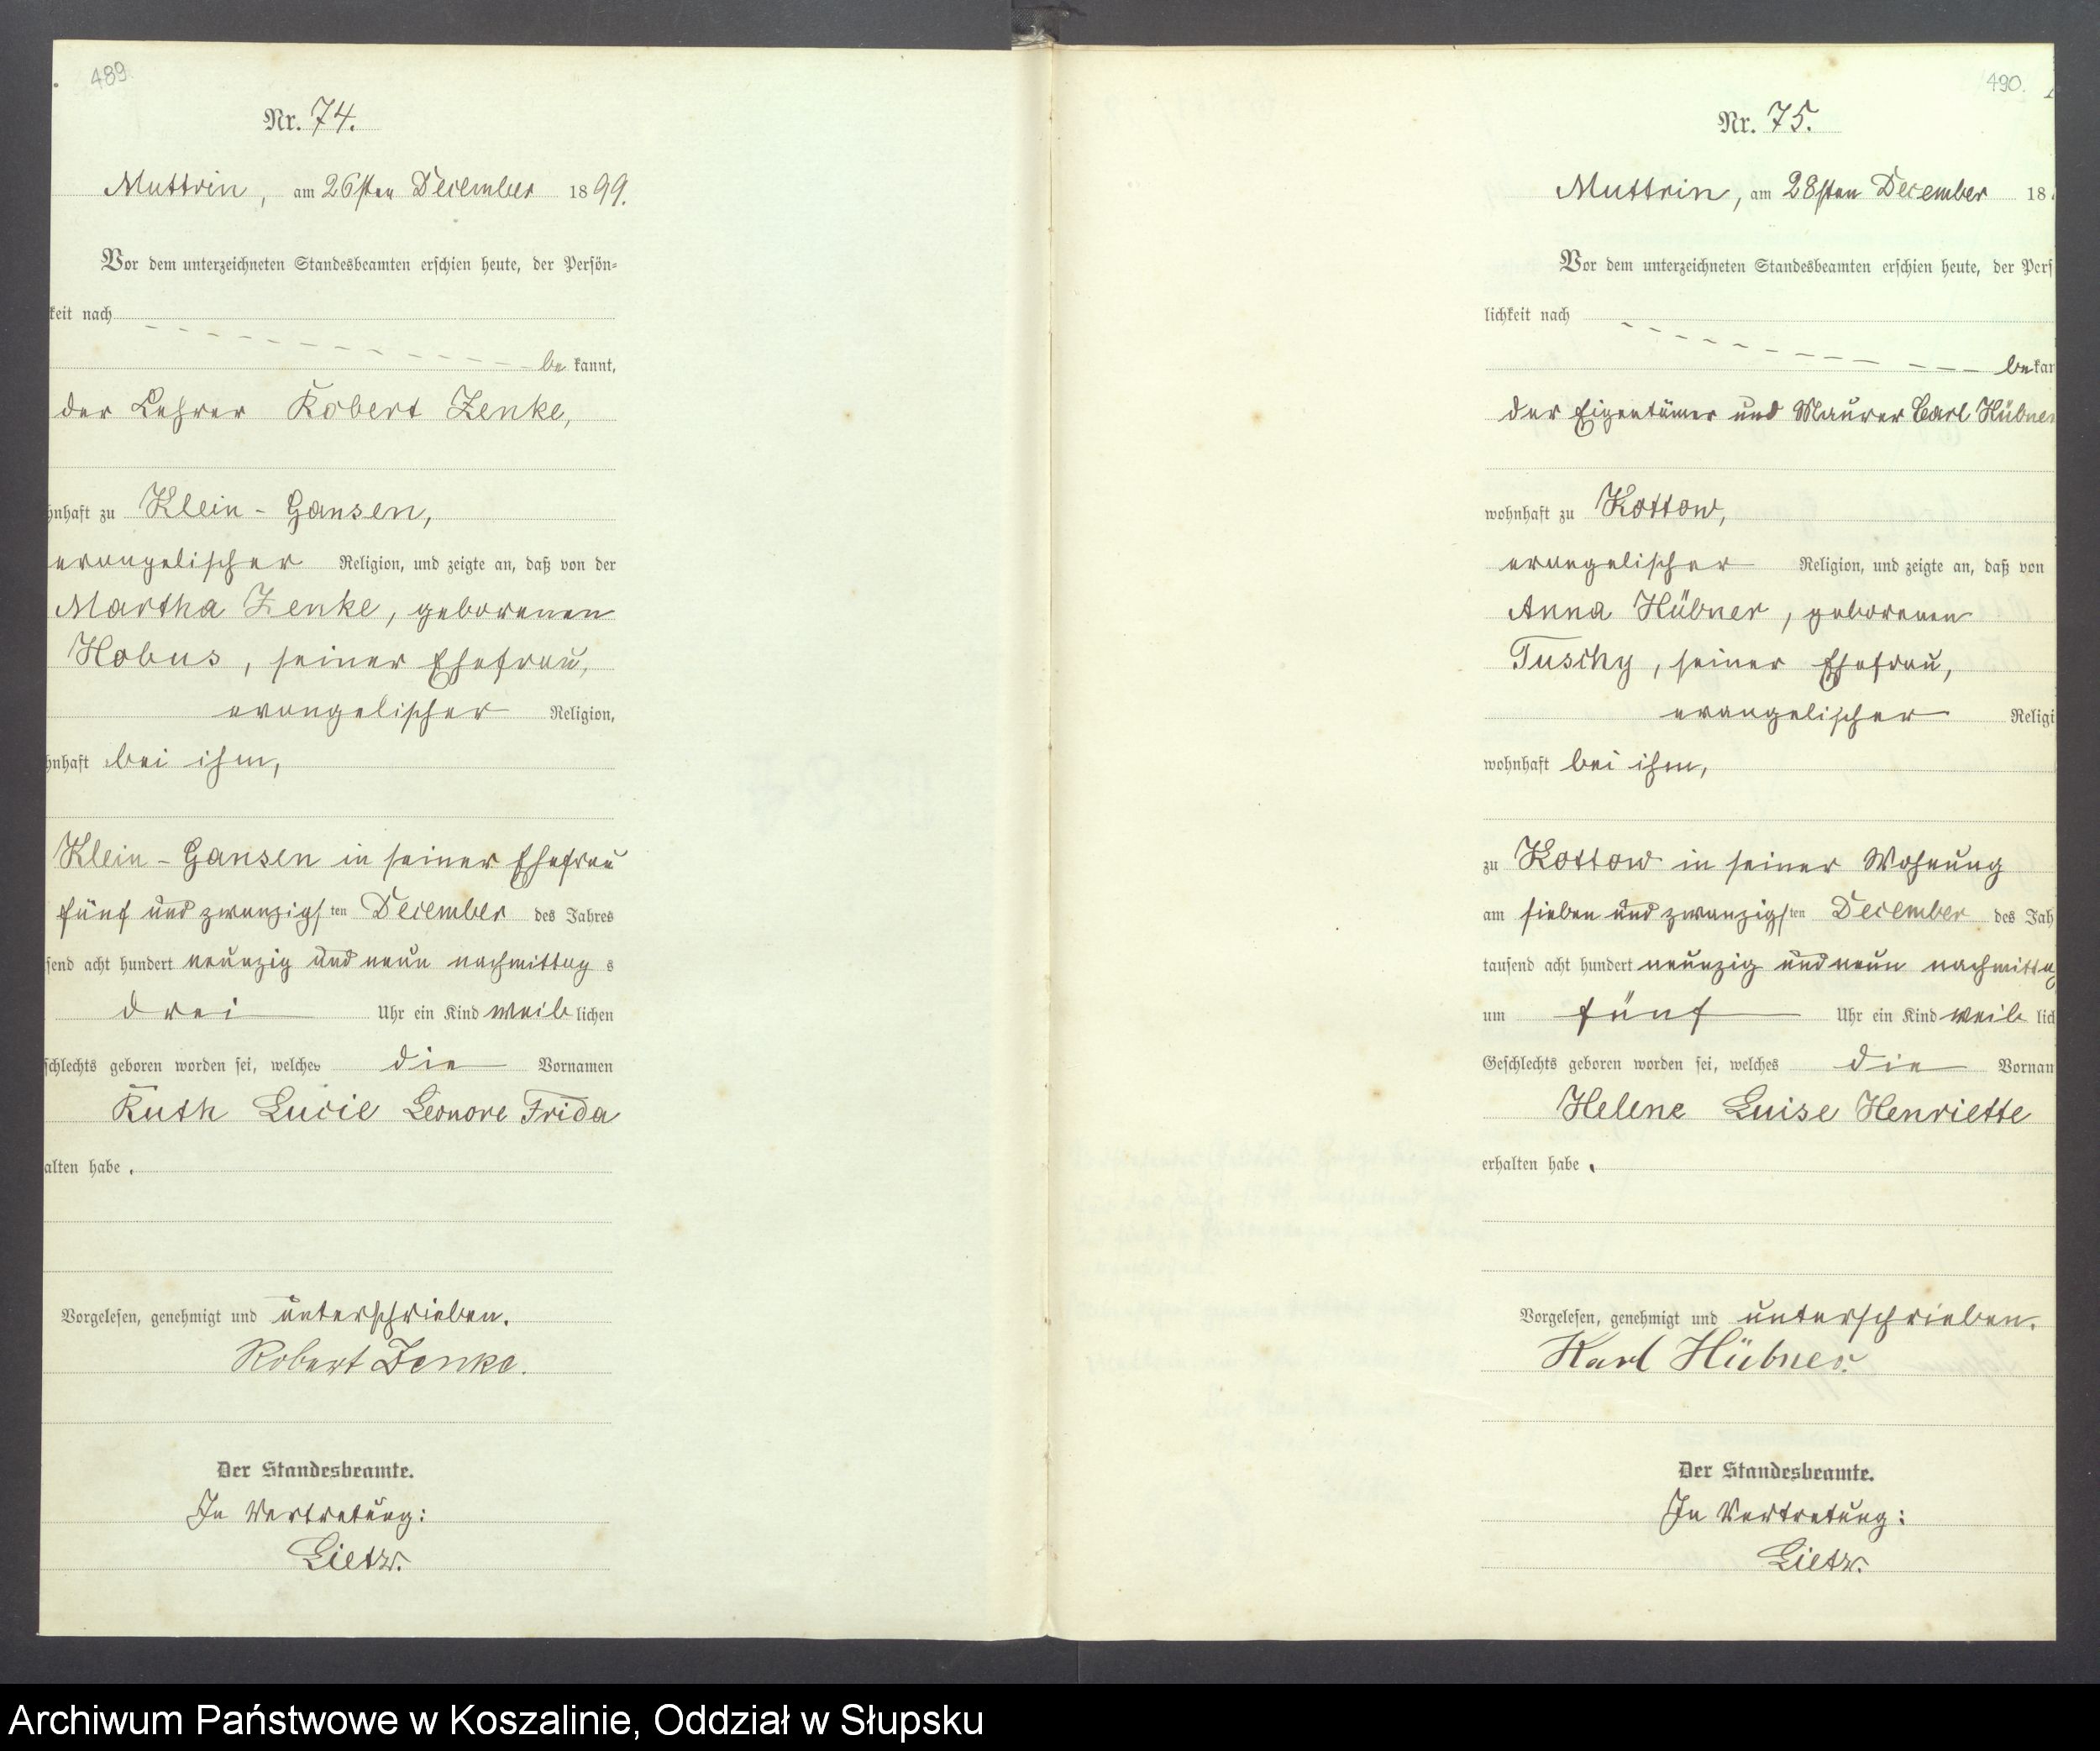 489.
Nr. 74.
Muttrin, am 26sten December 1899.
Vor dem unterzeichneten Standesbeamten erschien heute, der Persön-
keit nach
be kannt,
der Lehrer Robert Zenke,
hnhaft zu Klein-Gansen,
evangelischer Religion, und zeigte an, daß von der
Martha Zenke, geborenen
Hobus, seiner Ehefrau,
evangelischer Religion,
hnhaft bei ihm,
Klein-Gansen in seiner Ehefrau
fünf und zwanzigsten December des Jahres
send acht hundert neunzig und neun nachmittag s
drei Uhr ein Kind weib lichen
schlechts geboren worden sei, welches die Vornamen
Ruth Lucie Leonore Frida
alten habe.
Vorgelesen, genehmigt und unterschrieben.
Robert Zenke.
Der Standesbeamte.
In Vertretung:
Lietz.
490.
Nr. 75.
Muttrin, am 28sten December 18
Vor dem unterzeichneten Standesbeamten erschien heute, der Pers
lichkeit nach
be kan
der Eigentümer und Maurer Carl Hübner
wohnhaft zu Kottow,
evangelischer Religion, und zeigte an, daß von
Anna Hübner, geborenen
Tuschy, seiner Ehefrau,
evangelischer Religi
wohnhaft bei ihm,
zu Kottow in seiner Wohnung
am sieben und zwanzigsten December des Jah
tausend acht hundert neunzig und neun nachmittag
um fünf Uhr ein Kind weib lich
Geschlechts geboren worden sei, welches die Vornam
Helene Luise Henriette
erhalten habe.
Vorgelesen, genehmigt und unterschrieben.
Karl Hübner.
Der Standesbeamte.
In Vertretung:
Lietz.
Archiwum Państwowe w Koszalinie, Oddział w Słupsku